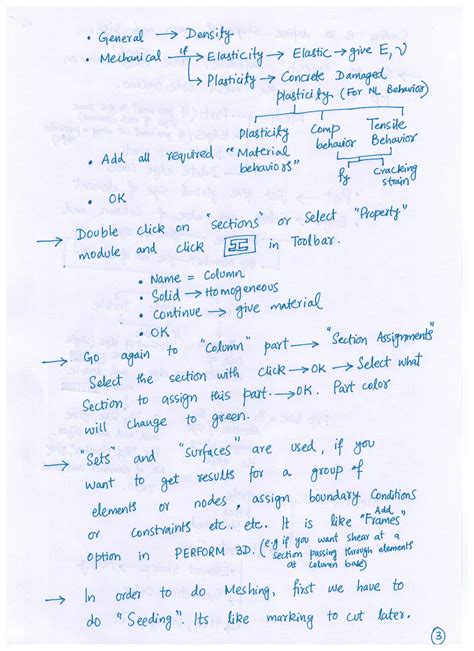 • General → Density
• Mechanical if → Elasticity → Elastic → give E, ν
→ Plasticity → Concrete Damaged
Plasticity (For NL Behavior)
Plasticity Comp behavior Tensile Behavior
fy Cracking strain
• Add all required "Material
behaviors"
• OK
→ Double click on "sections" or Select "Property"
module and click in Toolbar.
• Name = Column
• Solid → Homogeneous
• Continue → give material
• OK
→ Go again to "Column" part → "Section Assignments"
Select the section with click → OK → Select what
Section to assign this part. → OK. Part color
will change to green.
→ "Sets" and "surfaces" are used, if you
want to get results for a group of
elements or nodes, assign boundary Conditions
or constraints etc, etc. It is like Add "Frames"
option in PERFORM 3D. (e.g if you want shear at a
section passing through elements
at column base)
→ In order to do Meshing, first we have to
do "Seeding". Its like marking to cut later.
3